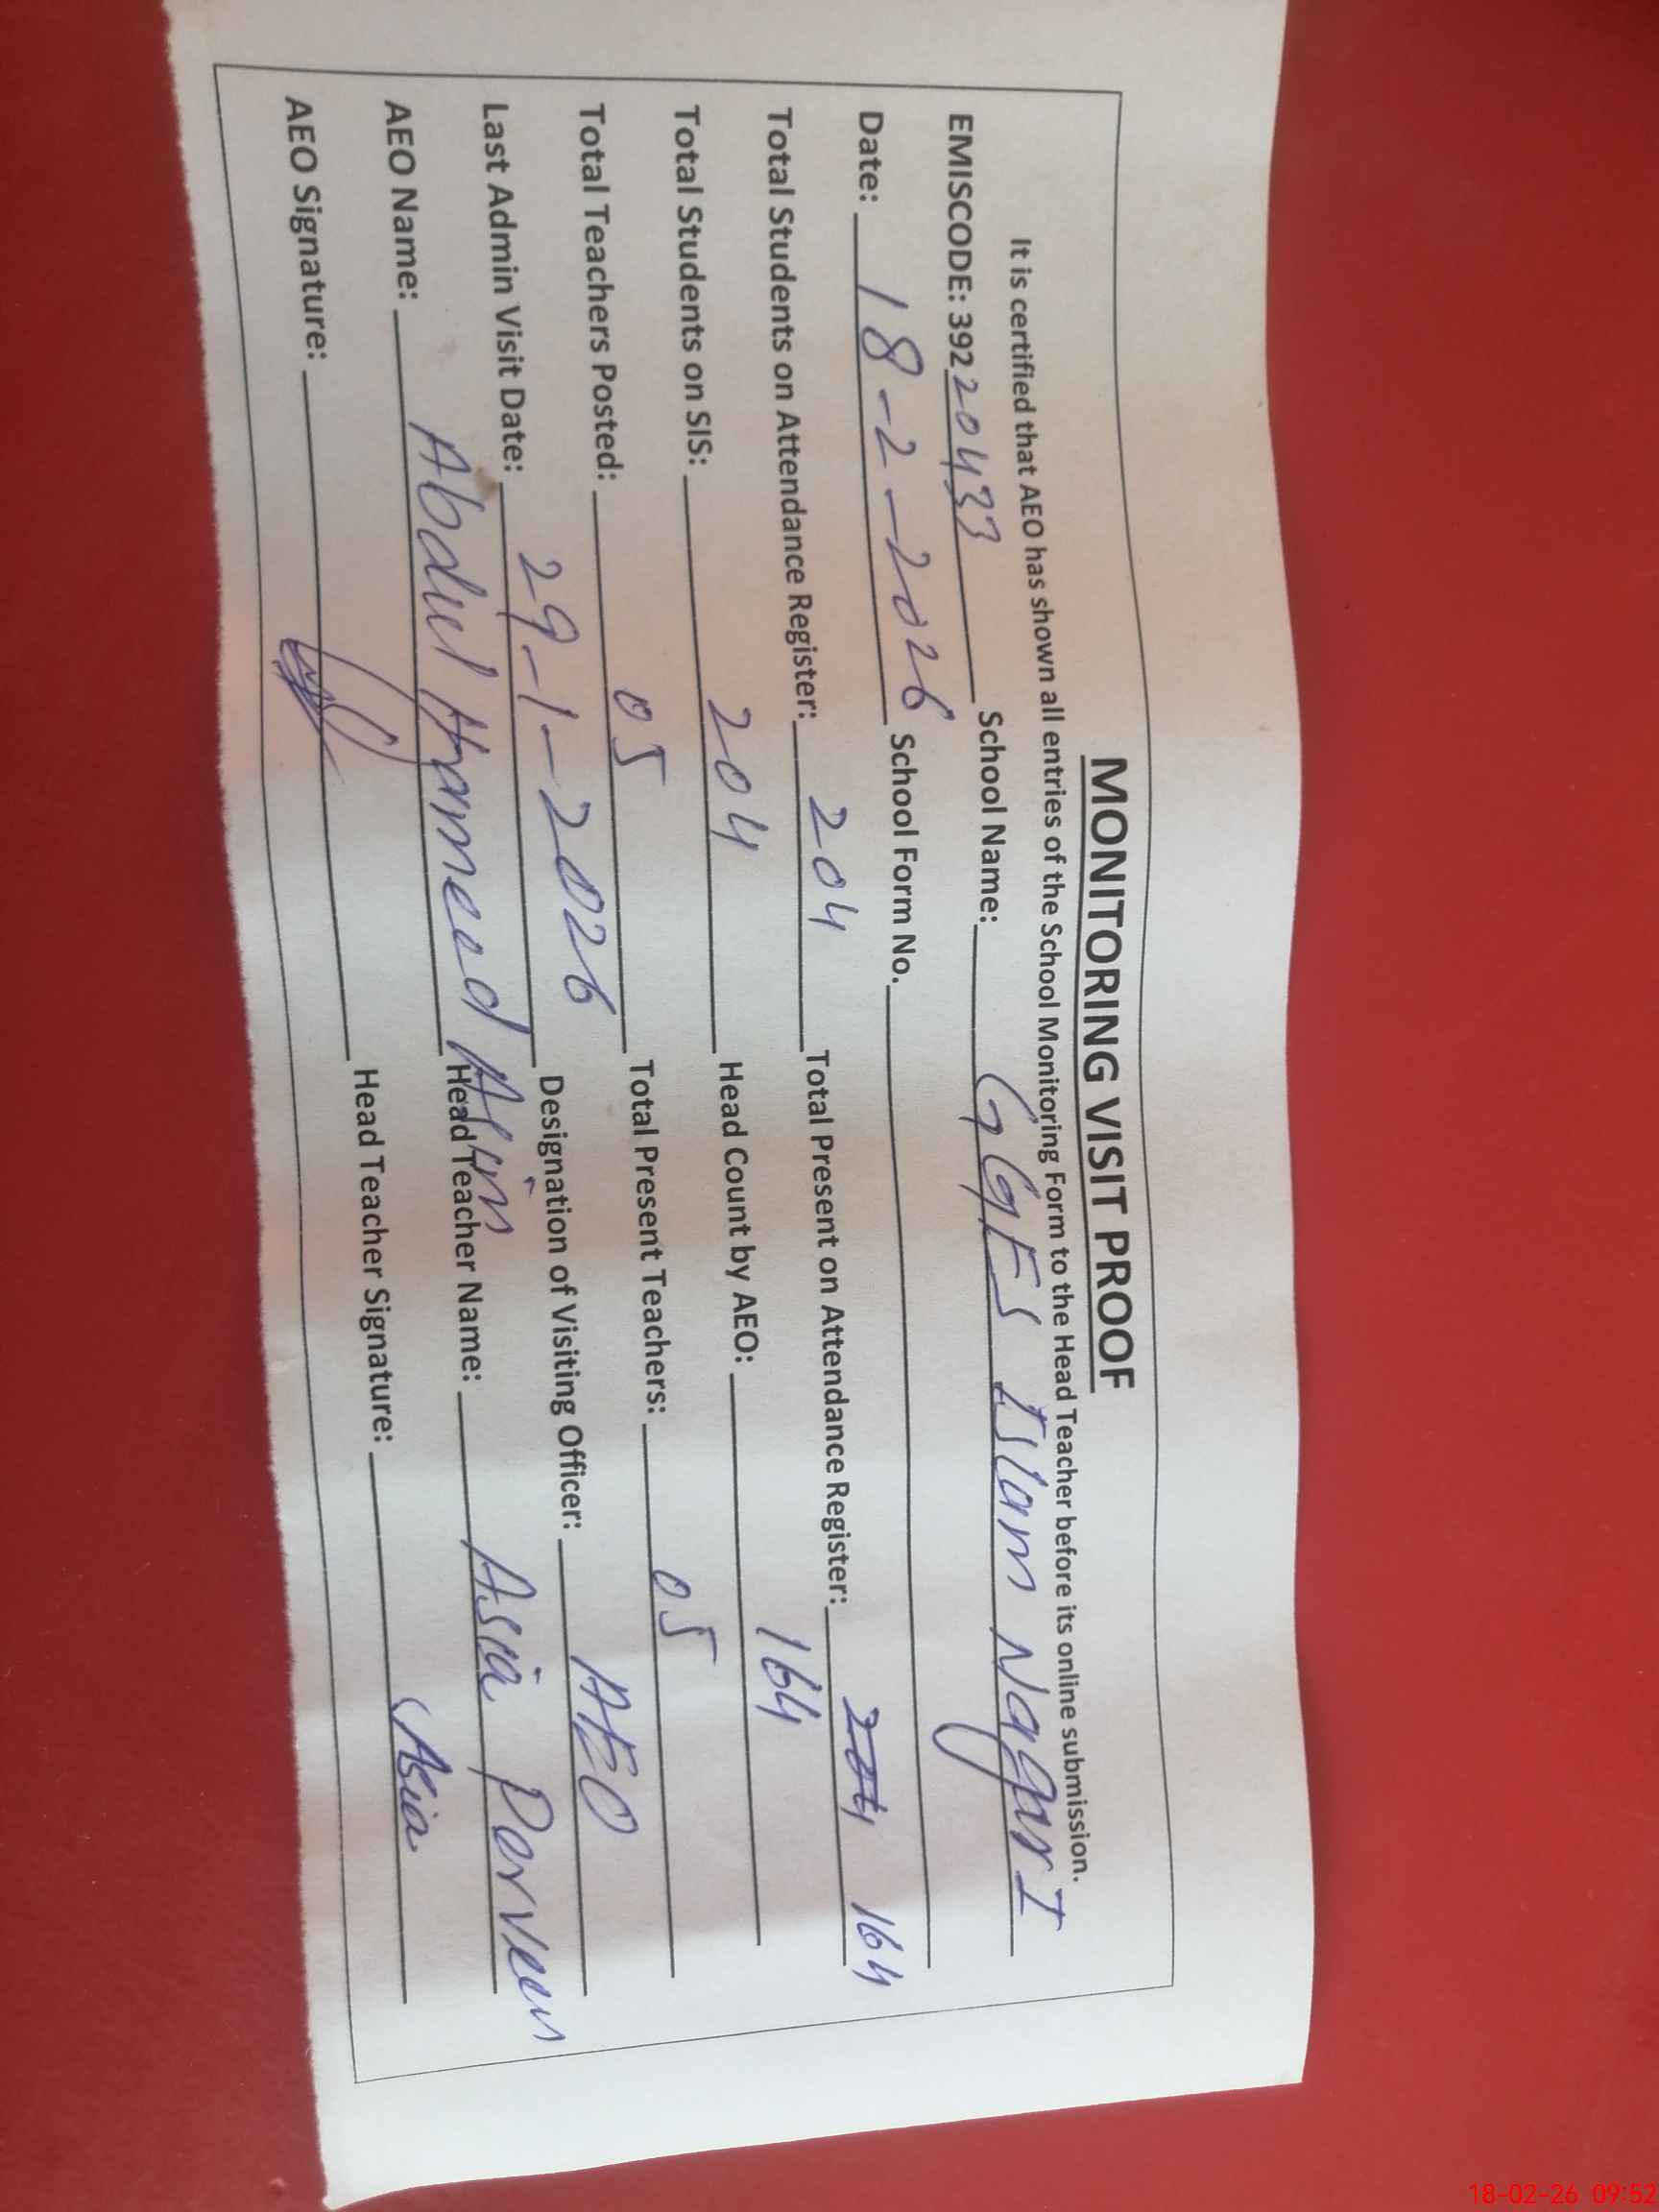 MONITORING VISIT PROOF
It is certified that AEO has shown all entries of the School Monitoring Form to the Head Teacher before its online submission.
EMISCODE: 39220433 School Name: GGES Islam Nagar I
Date: 18-2-2026 School Form No.
Total Students on Attendance Register: 204 Total Present on Attendance Register: 204 164
Total Students on SIS: 204 Head Count by AEO: 164
Total Teachers Posted: 05 Total Present Teachers: 05
Last Admin Visit Date: 29-1-2026 Designation of Visiting Officer: AEO
AEO Name: Abdul Hameed Head Teacher Name: Asia Perveen
AEO Signature: Head Teacher Signature: Asia
18-02-26 09:52